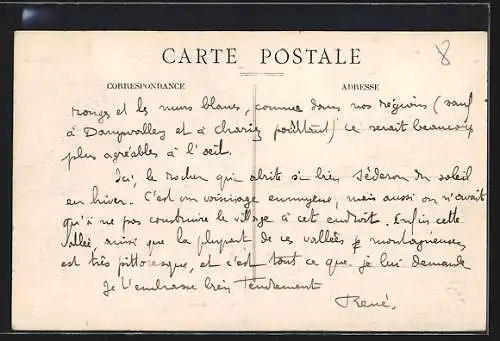 8
CARTE POSTALE
CORRESPONDANCE
ADRESSE
rouges et les murs blancs, comme dans nos régions (sauf
à et à pourtant) ce serait beaucoup
plus agréables à l'œil.
Ici, le rocher qui abrite si bien Séderon du soleil
en hiver. C'est un voisinage ennuyeux, mais aussi on n'avait
qu'à ne pas construire le village à cet endroit. Enfin cette
vallée, ainsi que la plupart de ces vallées montagneuses
est très pittoresque, et c'est tout ce que je lui demande
Je t'embrasse bien tendrement
René.